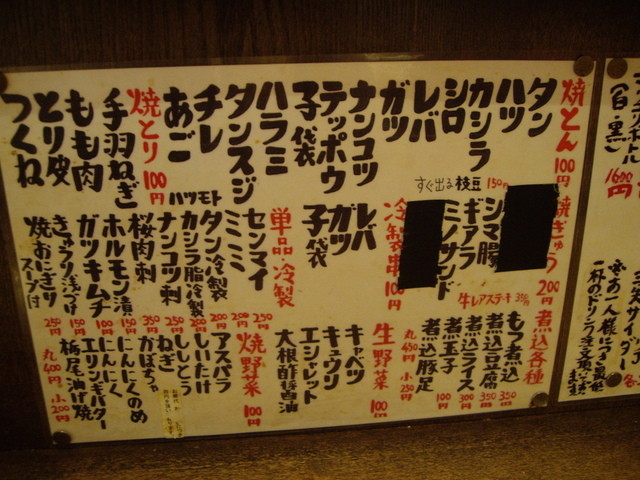 焼とん 100円
タン
ハツ
カシラ
シロ
レバ
ガツ
ナンコツ
テッポウ
子袋
ハラミ
タンスジ
チレ
あご
ハツモト
焼とり 100円
手羽ねぎ
もも肉
とり皮
つくね
すぐ出る 枝豆 150円
焼ぎゅう 200円
シマ腸
ギアラ
ミノサンド
牛レアステーキ 350円
冷製串 100円
レバ
ガツ
子袋
単品・冷製
センマイ 250円
ミミ 200円
タン冷製 200円
カシラ脂冷製 200円
ナンコツ刺 250
桜肉刺 350
ホルモン漬 150円
ガツキムチ 100円
きゅうり浅づけ 150円
焼おにぎり スープ付 250円
煮込各種
もつ煮込 350
煮込豆腐 350
煮込ライス 300
煮玉子 100
煮込豚足 丸450円 小250
生野菜 100円
キャベツ
キュウリ
エシャレット
大根酢醤油
焼野菜 100円
アスパラ
しいたけ
ししとう
ねぎ
かぼちゃ
にんにくのめ
にんにく
エリンギバター
栃尾油げ焼 丸400円 小200
(白・黒) 1600円